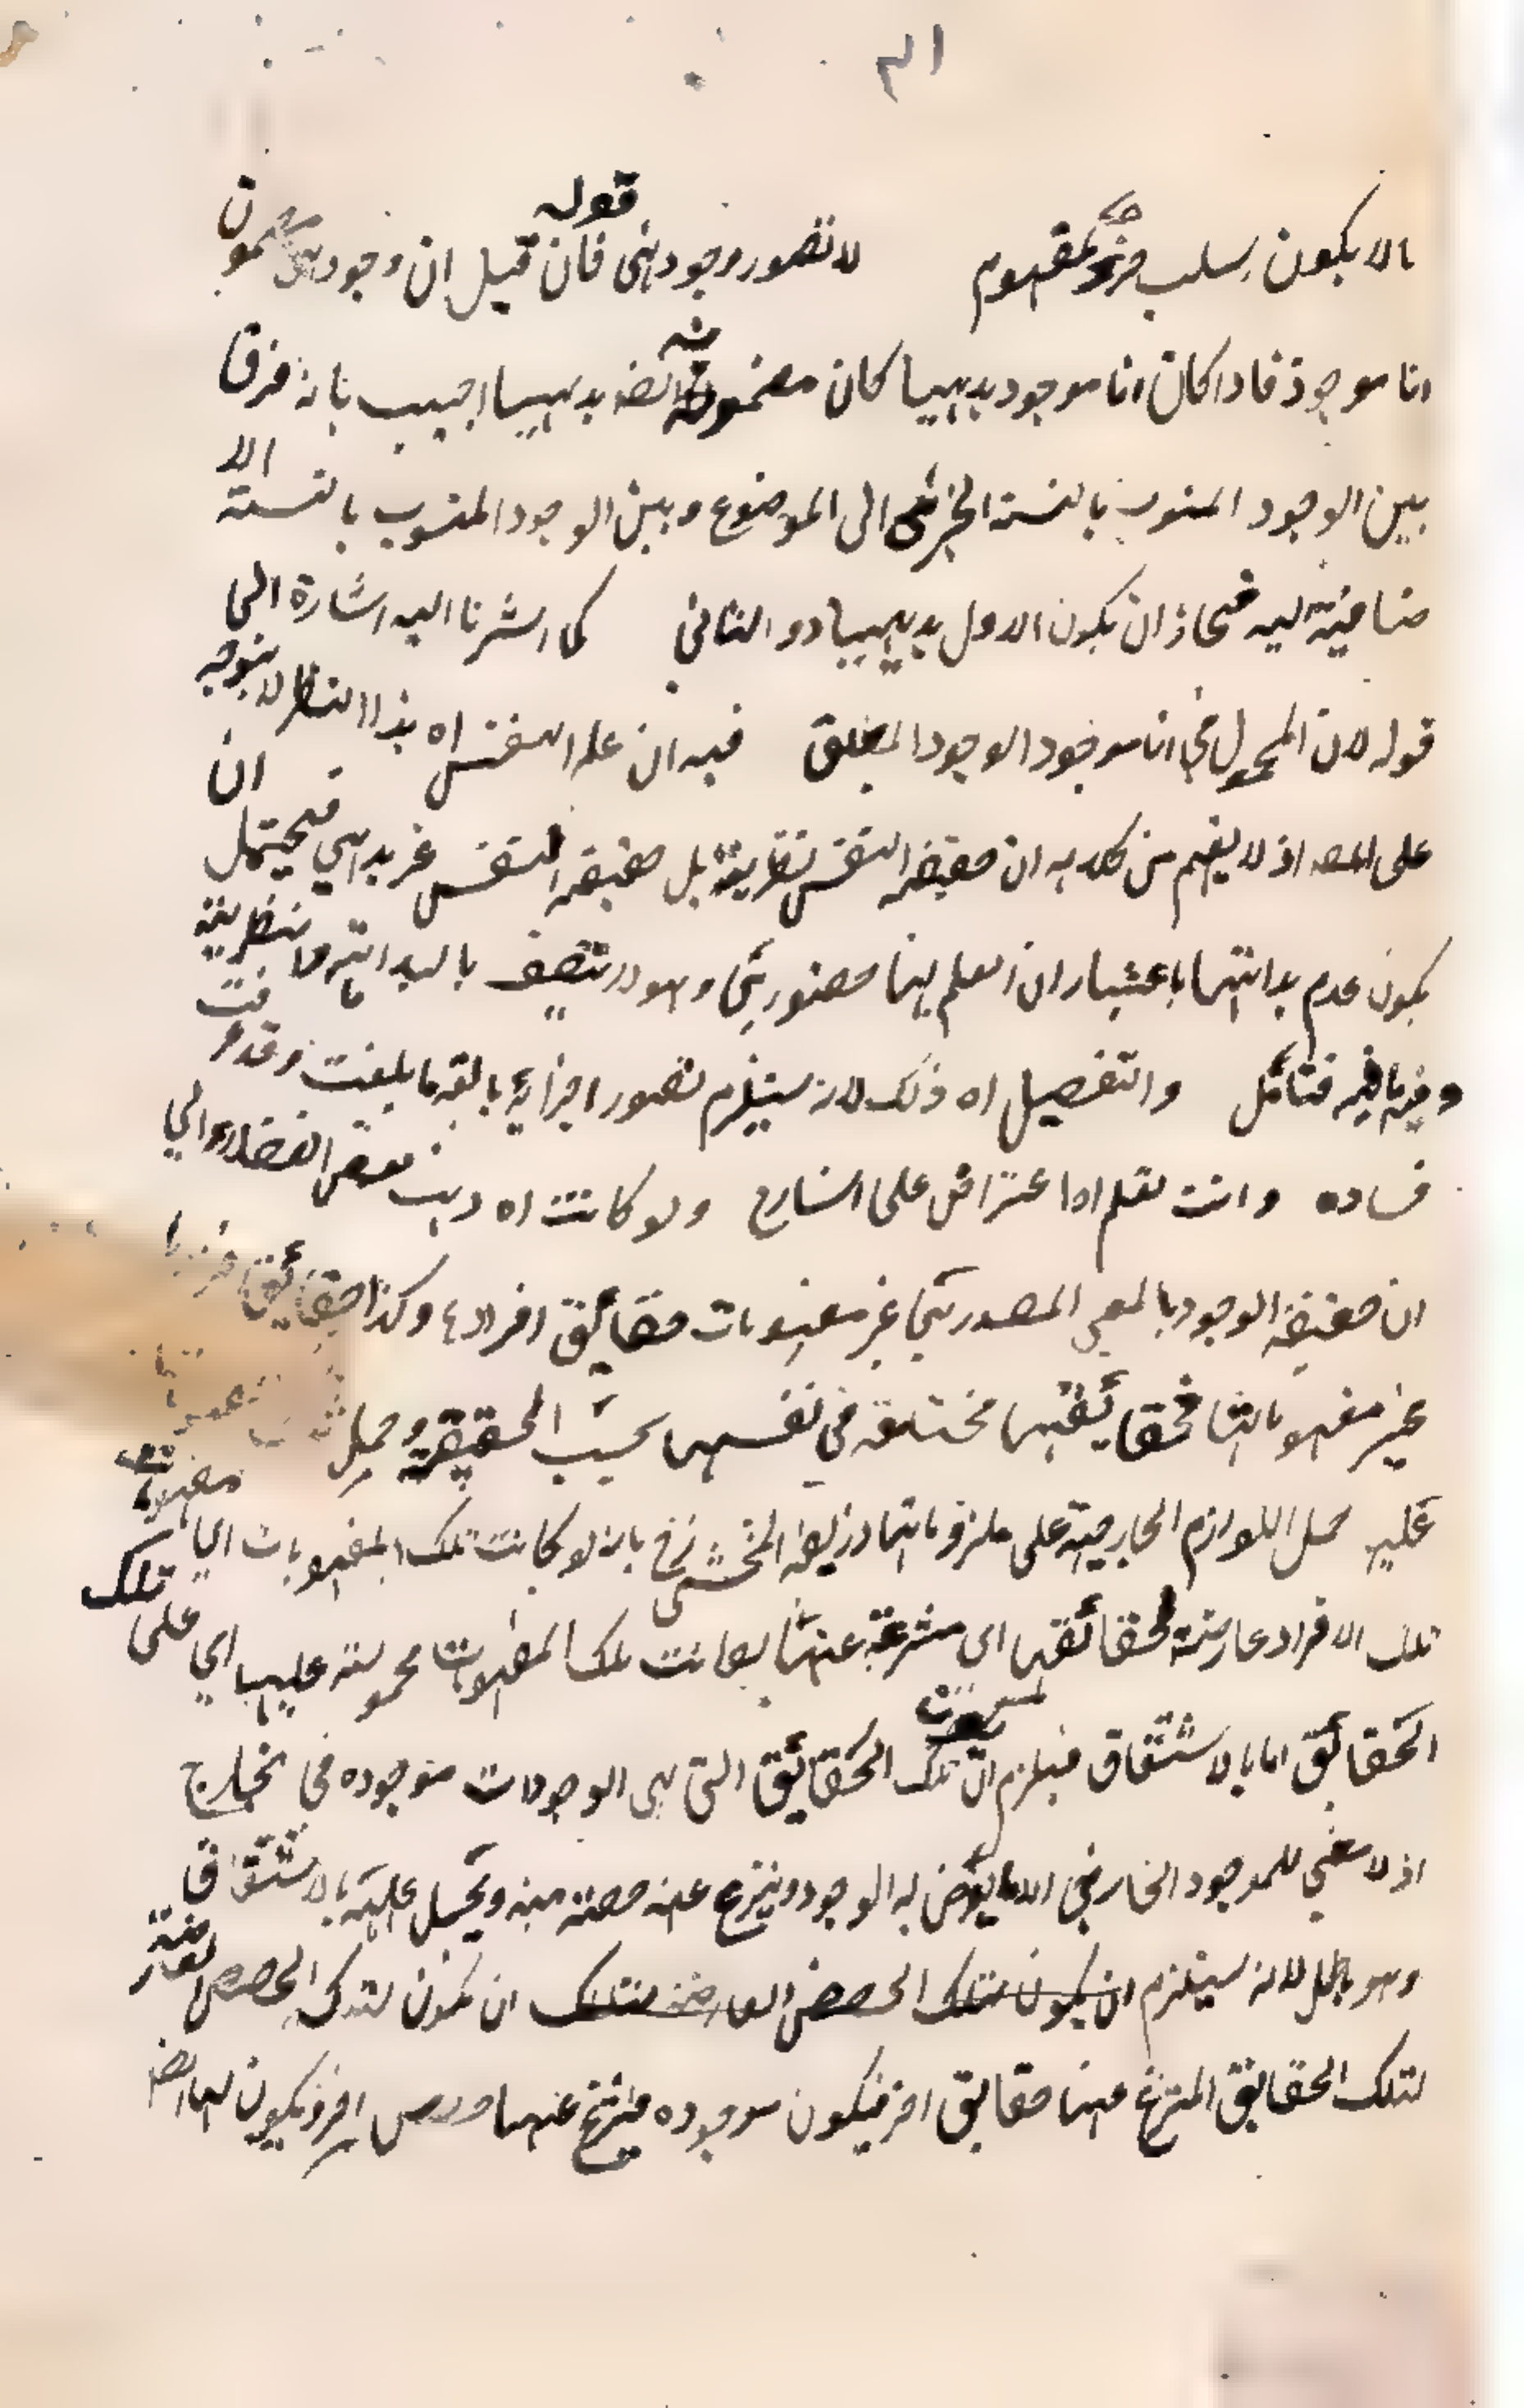 الم
ما لا يكون سلب فرد لمفهوم لا تصور وجودي قوله فان قيل ان وجودي مضمون
انا موجود فاذا كان انا موجود بديهيا كان مضمونه ايضا بديهيا اجيب بانه فرق
بين الوجود المنسوب بالنسبة الخبرية الى الموضوع وبين الوجود المنسوب بالنسبة الا
ضافية اليه فجاز ان يكون الاول بديهيا دون الثاني كما اشرنا اليه اشارة الى
قوله لان المحمول في انا موجود الوجود المطلق فيه ان علم النفس اه هذا النظر لا يتوجه
على المصـ اذ لا يفهم من كلامه ان حقيقة النفس نظرية بل حقيقة النفس غير بديهي فيحتمل ان
يكون عدم بداهتها باعتبار ان العلم بها حضوري وهو لا يتصف بالبداهة والنظرية
وفيه ما فيه فتأمل والتفصيل اه ذلك لانه يستلزم تصور اجزائه بالغة ما بلغت وقد عرفت
فساده وانت تعلم اه اعتراض على الشارح ولو كانت اه ذهب بعض الفضلاء الى
ان حقيقة الوجود بالمعنى المصدري غير مفهومات حقائق افرادها وكذا حقائق
غير مفهوماتها فحقائقها مختلفة في نفسها بحسب الحقيقة وحمل مفهوماتها
عليها حمل اللوازم الخارجية على ملزوماتها وزيفه المحشي بانه لو كانت تلك المفهومات اي
تلك الافراد عارضة لحقائقها اي منتزعة عنها لكانت تلك المفهومات محمولة عليها اي على تلك
الحقائق اما بالاشتقاق فيلزم ان تكون تلك الحقائق التي هي الوجودات موجوده في الخارج
اذ لا معنى للموجود الخارجي الا ما يعرض له الوجود وينتزع عنه حصة منه ويحمل عليه بالاشتقاق
وهو باطل لانه يستلزم ان يكون لتلك الحصص العارضة لتلك ان تكون لتلك الحصص العارضة
لتلك الحقايق المنتزع عنها حقايق اخر فيكون موجوده فينتزع عنها حصص اخر فيكون لها ايضا